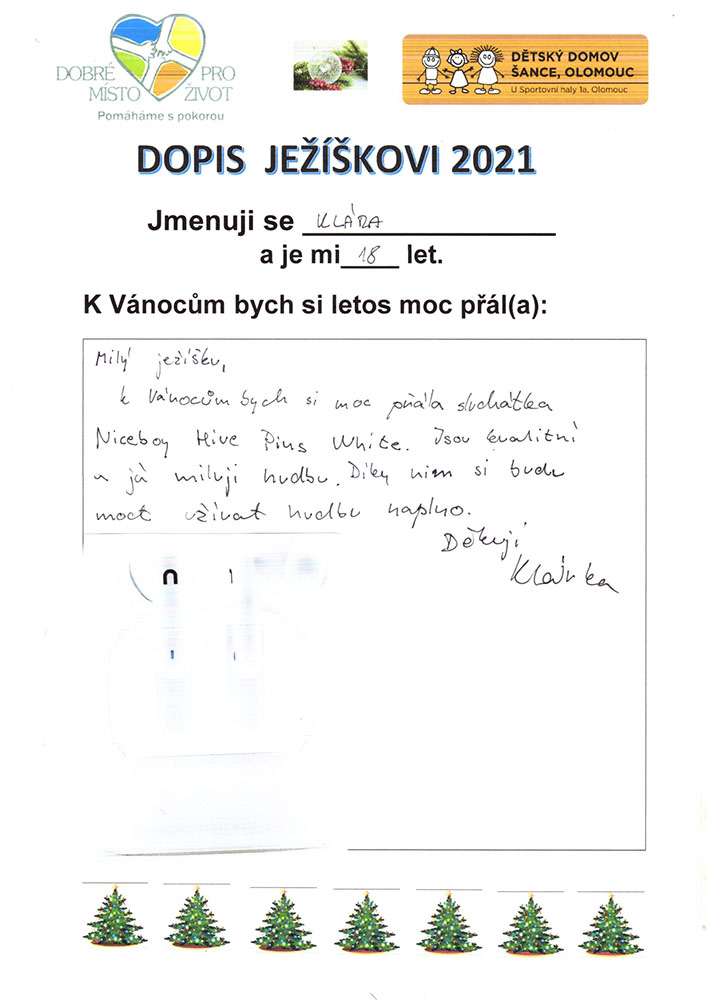 DOBRÉ PRO
MÍSTO ŽIVOT
Pomáháme s pokorou
DĚTSKÝ DOMOV
ŠANCE, OLOMOUC
U Sportovní haly 1a, Olomouc
DOPIS JEŽÍŠKOVI 2021
Jmenuji se KLÁRA
a je mi 18 let.
K Vánocům bych si letos moc přál(a):
Milý ježíšku,
k Vánocům bych si moc přála sluchátka
Niceboy Hive Pins White. Jsou kvalitní
a já miluji hudbu. Díky nim si budu
moct užívat hudbu naplno.
Děkuji
Klárka